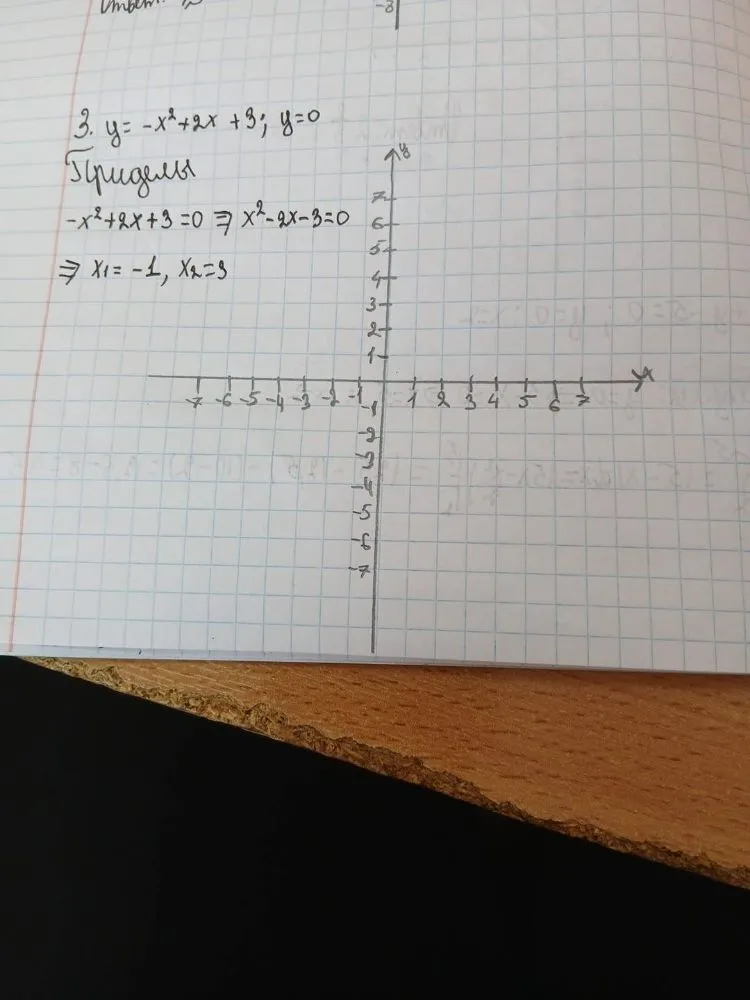 Ответ:
-3
3. y = -x²+2x+3; y=0
Приделы
-x²+2x+3=0 ⇒ x²-2x-3=0
⇒ x₁= -1, x₂=3
y
7
6
5
4
3
2
1
x
-7 -6 -5 -4 -3 -2 -1 1 2 3 4 5 6 7
-1
-2
-3
-4
-5
-6
-7